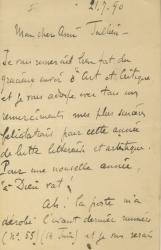 21.7.90
Mon cher ami Jullien,
Je vous remercie bien fort du
gracieux envoi d'Art et Critique
et je vous adresse avec tous mes
remerciements mes plus sincères
félicitations pour cette année
de lutte littéraire et artistique.
Pour une nouvelle année
"à Dieu vat!"
Ah! la poste m'a
dérobé l'avant dernier numéro
(n°. 55) (14 Juin) et je vous serais